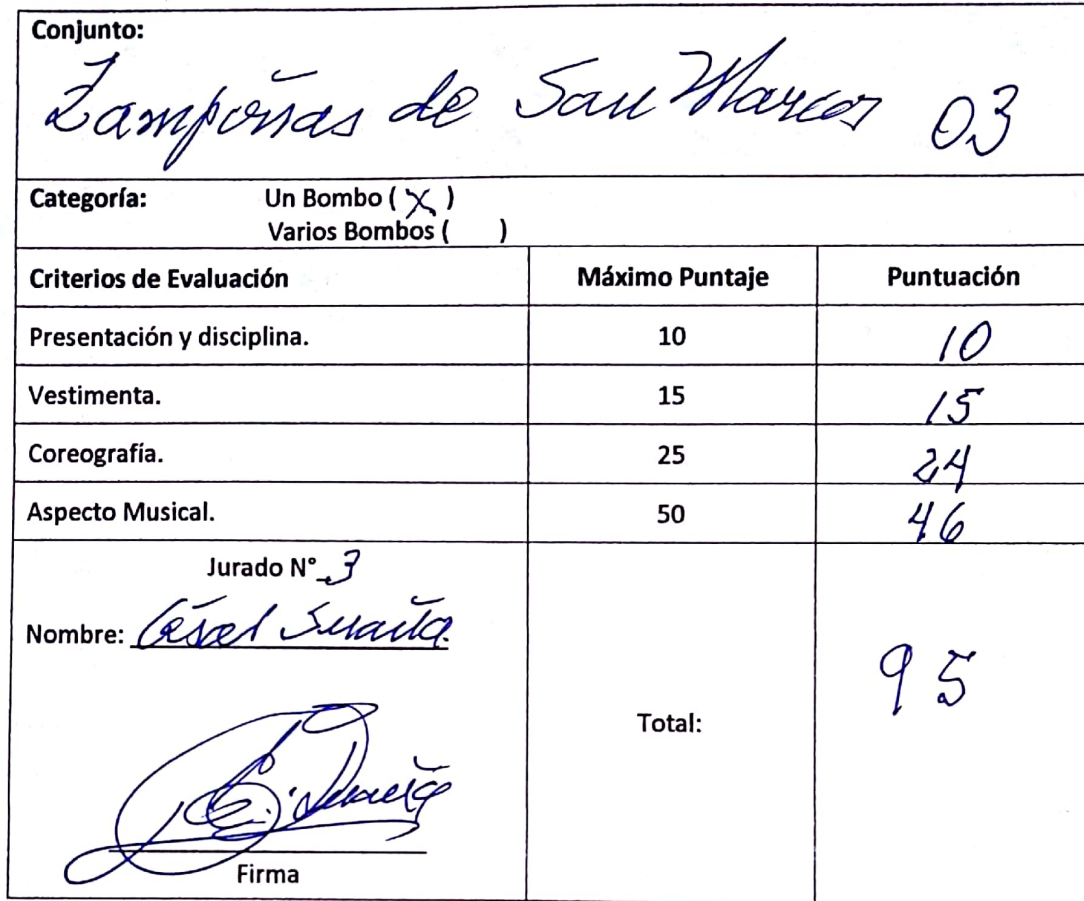 Conjunto:
Zampoñas de San Marcos 03
Categoría: Un Bombo ( X )
Varios Bombos ( )
Criterios de Evaluación Máximo Puntaje Puntuación
Presentación y disciplina. 10 10
Vestimenta. 15 15
Coreografía. 25 24
Aspecto Musical. 50 46
Jurado N° 3
Nombre: César Suaña
Total: 95
Firma